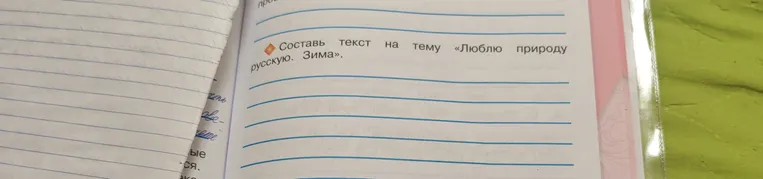 Составь текст на тему «Люблю природу
русскую. Зима».
ые
-ся.